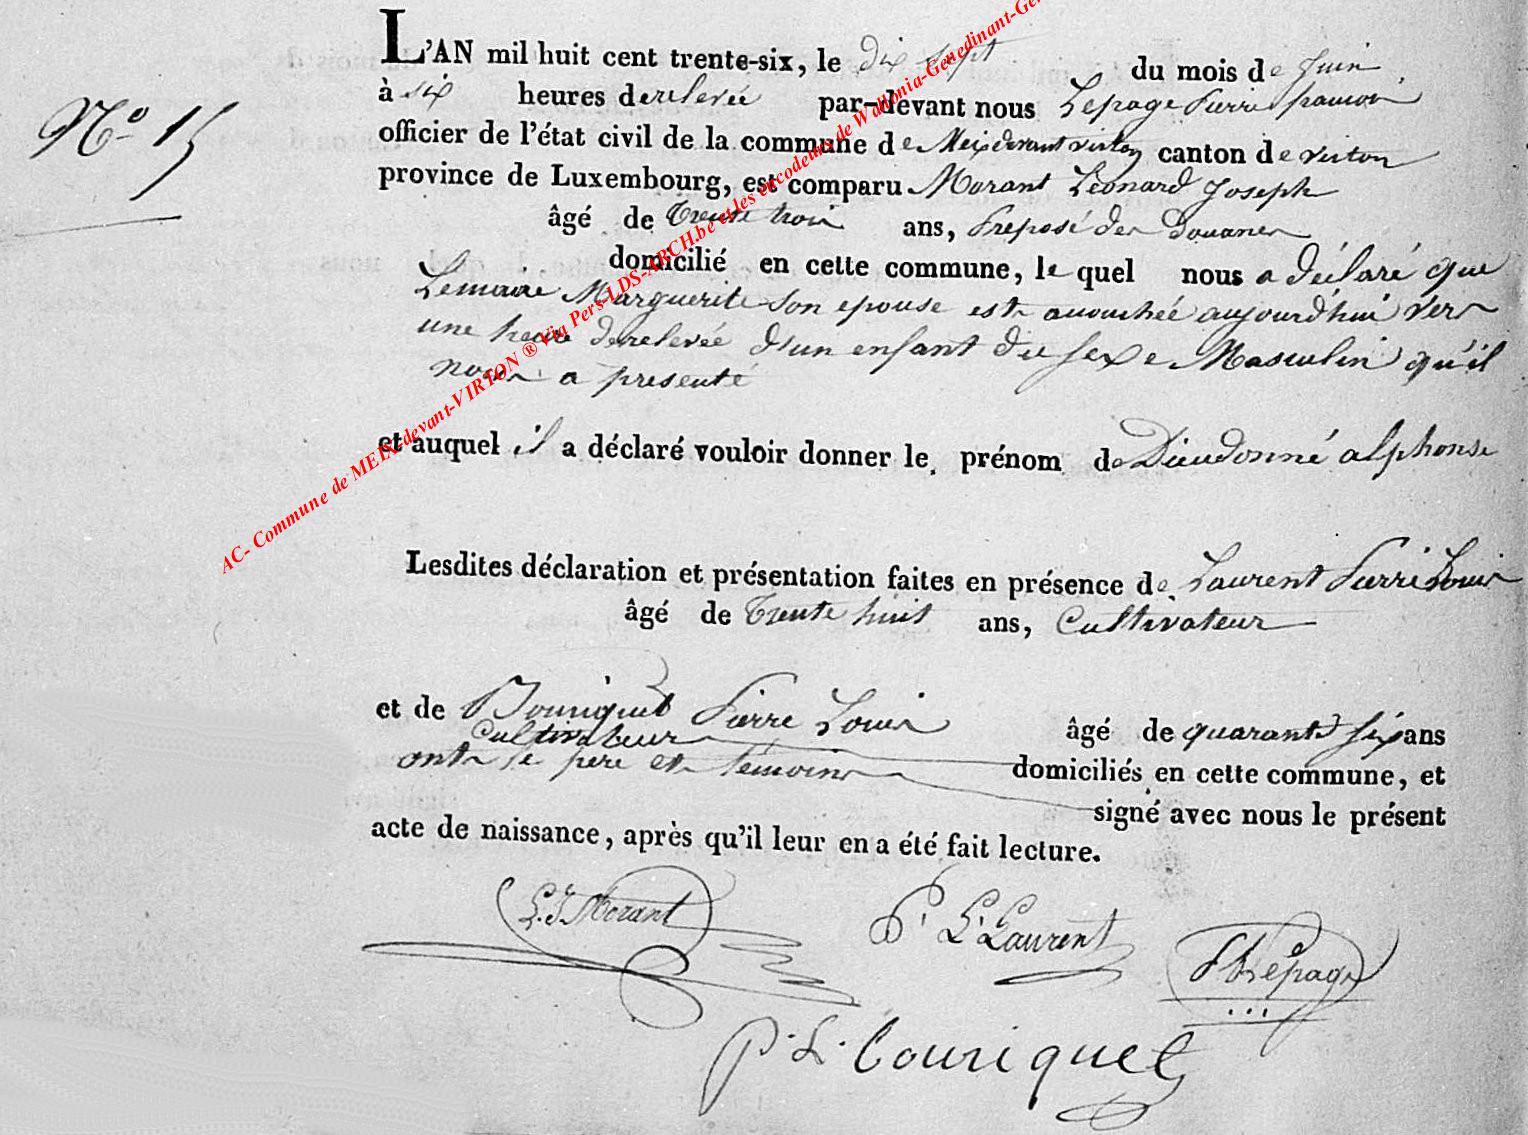 L'AN mil huit cent trente-six, le dix sept du mois de Juin,
à six heures derelevée par-devant nous Lepage Pierre
officier de l'état civil de la commune de Meixdevantvirton canton de virton
N.o 15
province de Luxembourg, est comparu Morant Léonard Joseph
âgé de Trente trois ans, Préposé des Douanes
domicilié en cette commune, le quel nous a déclaré que
Lemaire Marguerite son epouse est accouchée aujourd'hui vers
une heure derelevée d'un enfant du sexe Masculin qu'il
nous a presenté
et auquel il a déclaré vouloir donner le prénom de Dieudonné alphonse
Lesdites déclaration et présentation faites en présence de Laurent Pierre Louis
âgé de Trente huit ans, Cultivateur
et de Pierre Louis âgé de quarante six ans
Cultivateur domiciliés en cette commune, et
ont le pere et témoins signé avec nous le présent
acte de naissance, après qu'il leur en a été fait lecture.
L. J. Morant
P. L. Laurent
Lepage
P. L. Couriquet
AC- Commune de MEIX-devant-VIRTON ® Via Pers-LDS-ARCH.be et les encodeurs de Wallonia-Genedinant-Gen